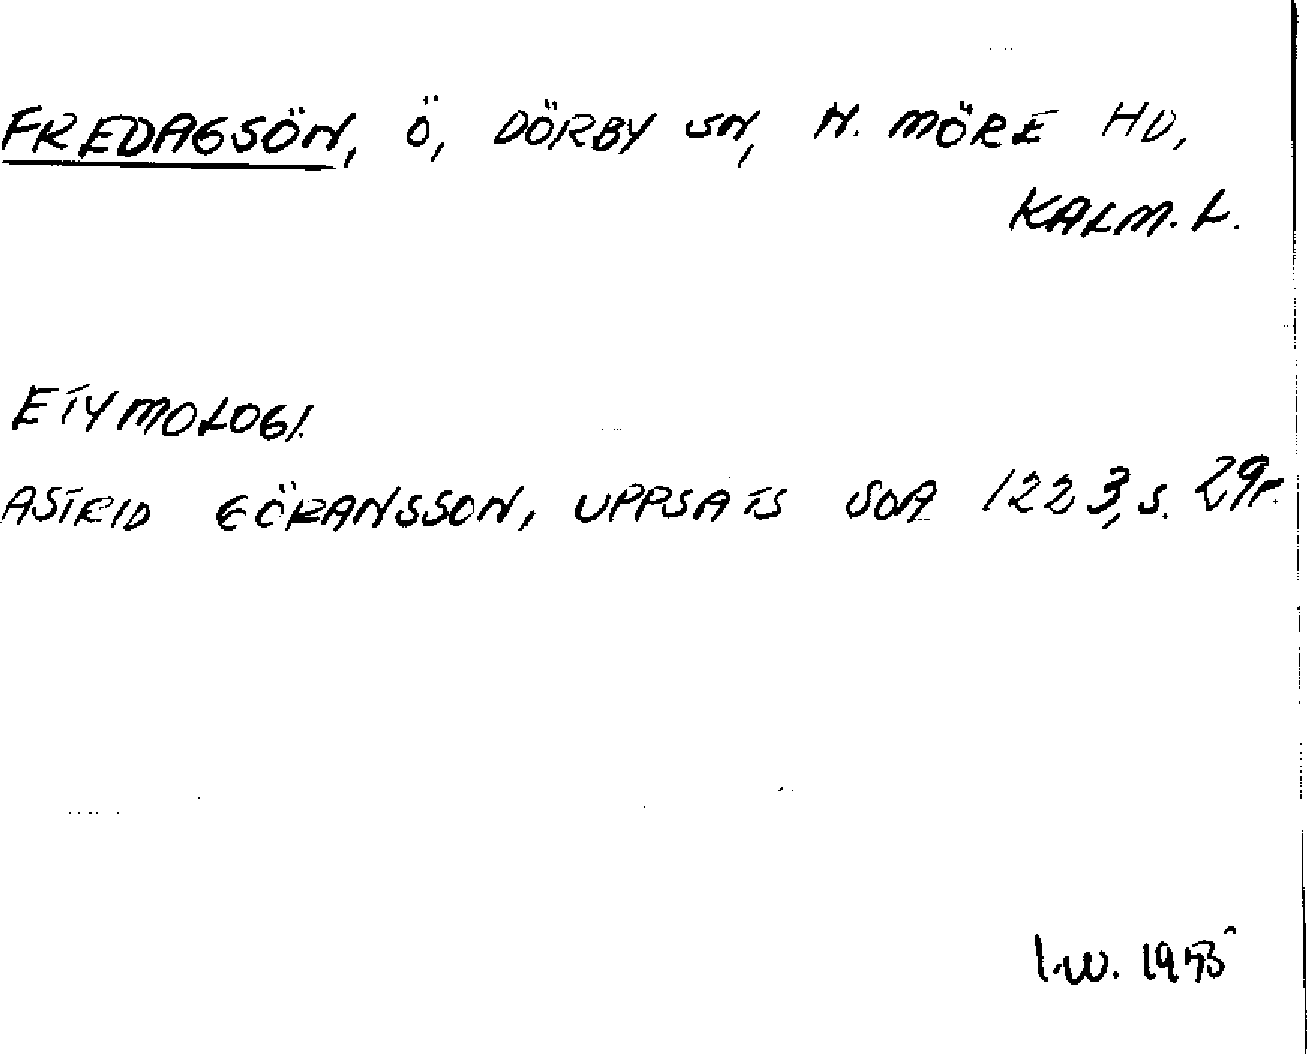 FREDAGSÖN, Ö, DÖRBY SN, N. MÖRE HD,
KALM. L.
ETYMOLOGI.
ASTRID GÖRANSSON, UPPSATS SOA 1223, S. 29f.
I.W. 1953